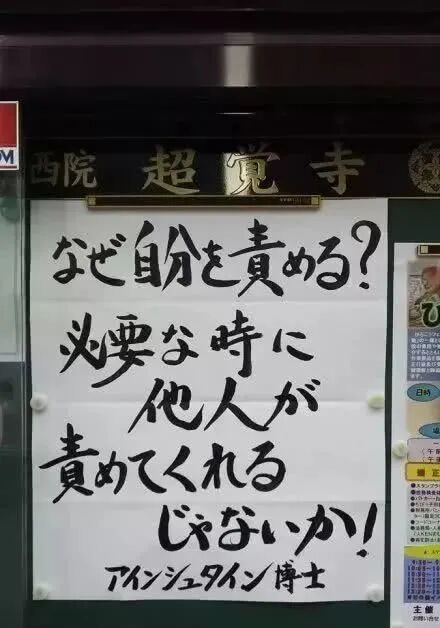 西院 超覚寺
なぜ自分を責める?
必要な時に
他人が
責めてくれる
じゃないか!
アインシュタイン博士
OM
ひ
日時
主催